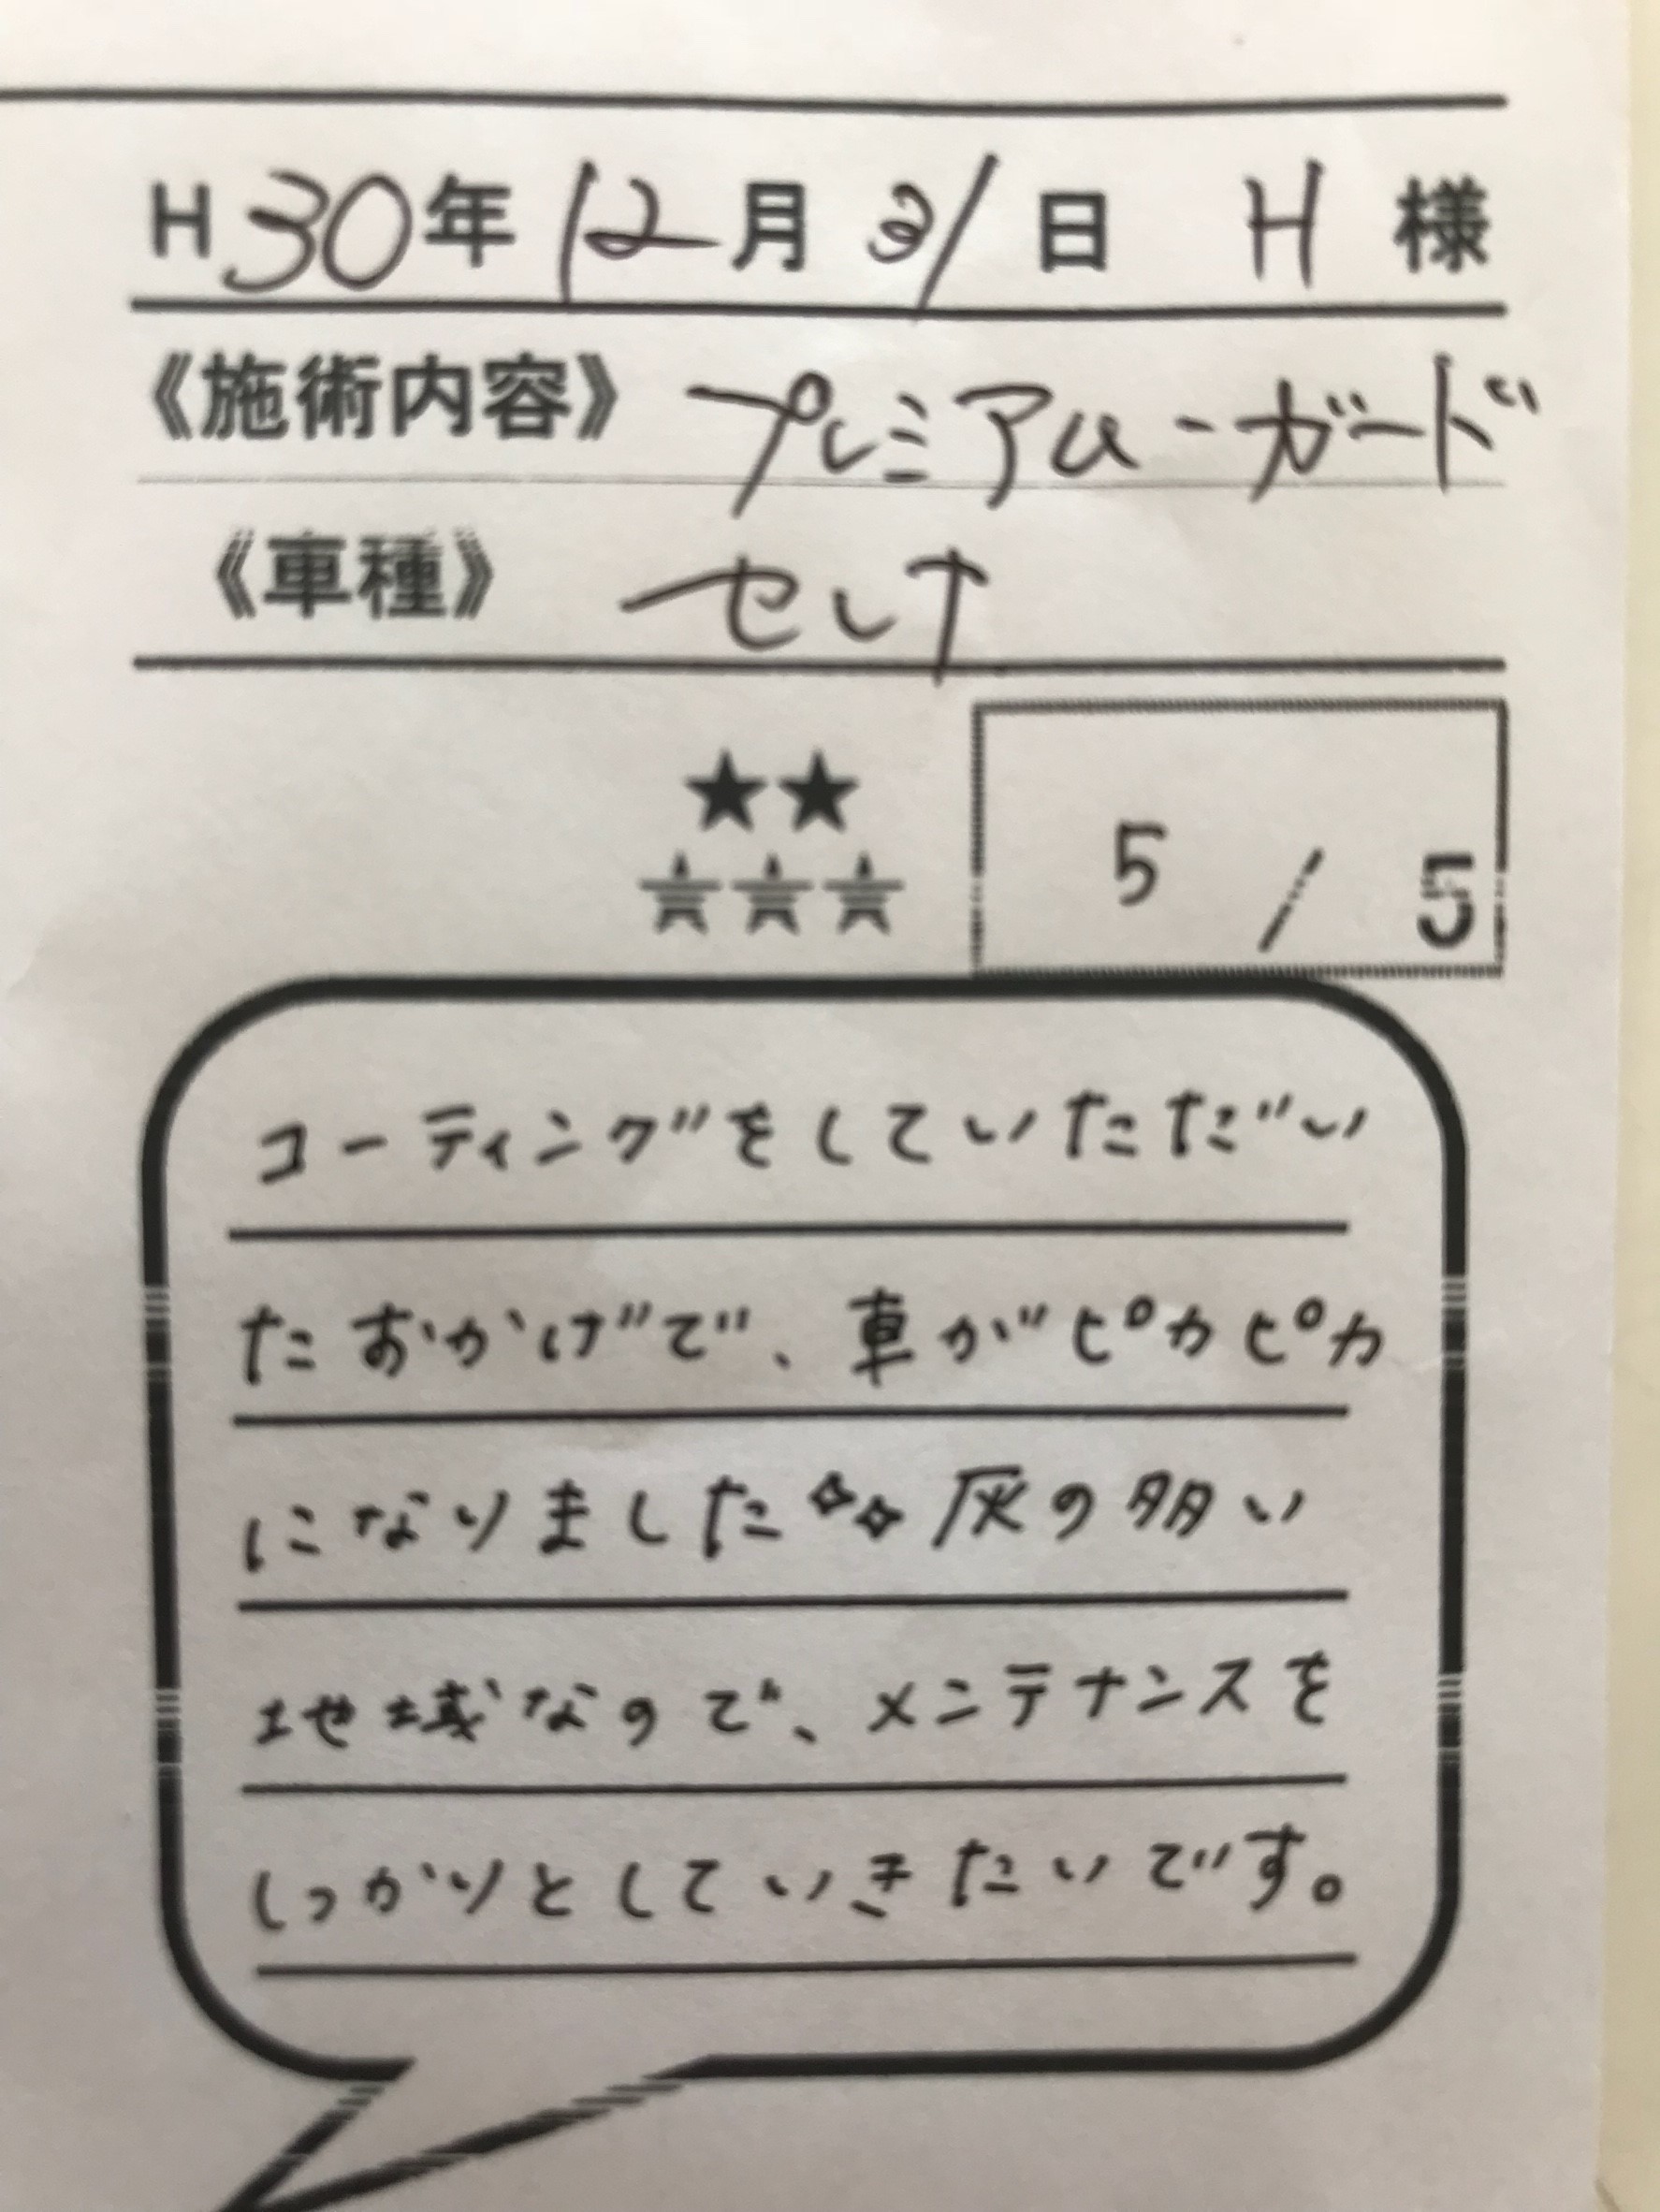 H30年 12月 31日 H 様
《施術内容》 プレミアム-ガード
《車種》 セレナ
★★
☆☆☆
5 / 5
コーティングをしていただい
たおかげで、車がピカピカ
になりました✧✧灰の多い
地域なので、メンテナンスを
しっかりとしていきたいです。